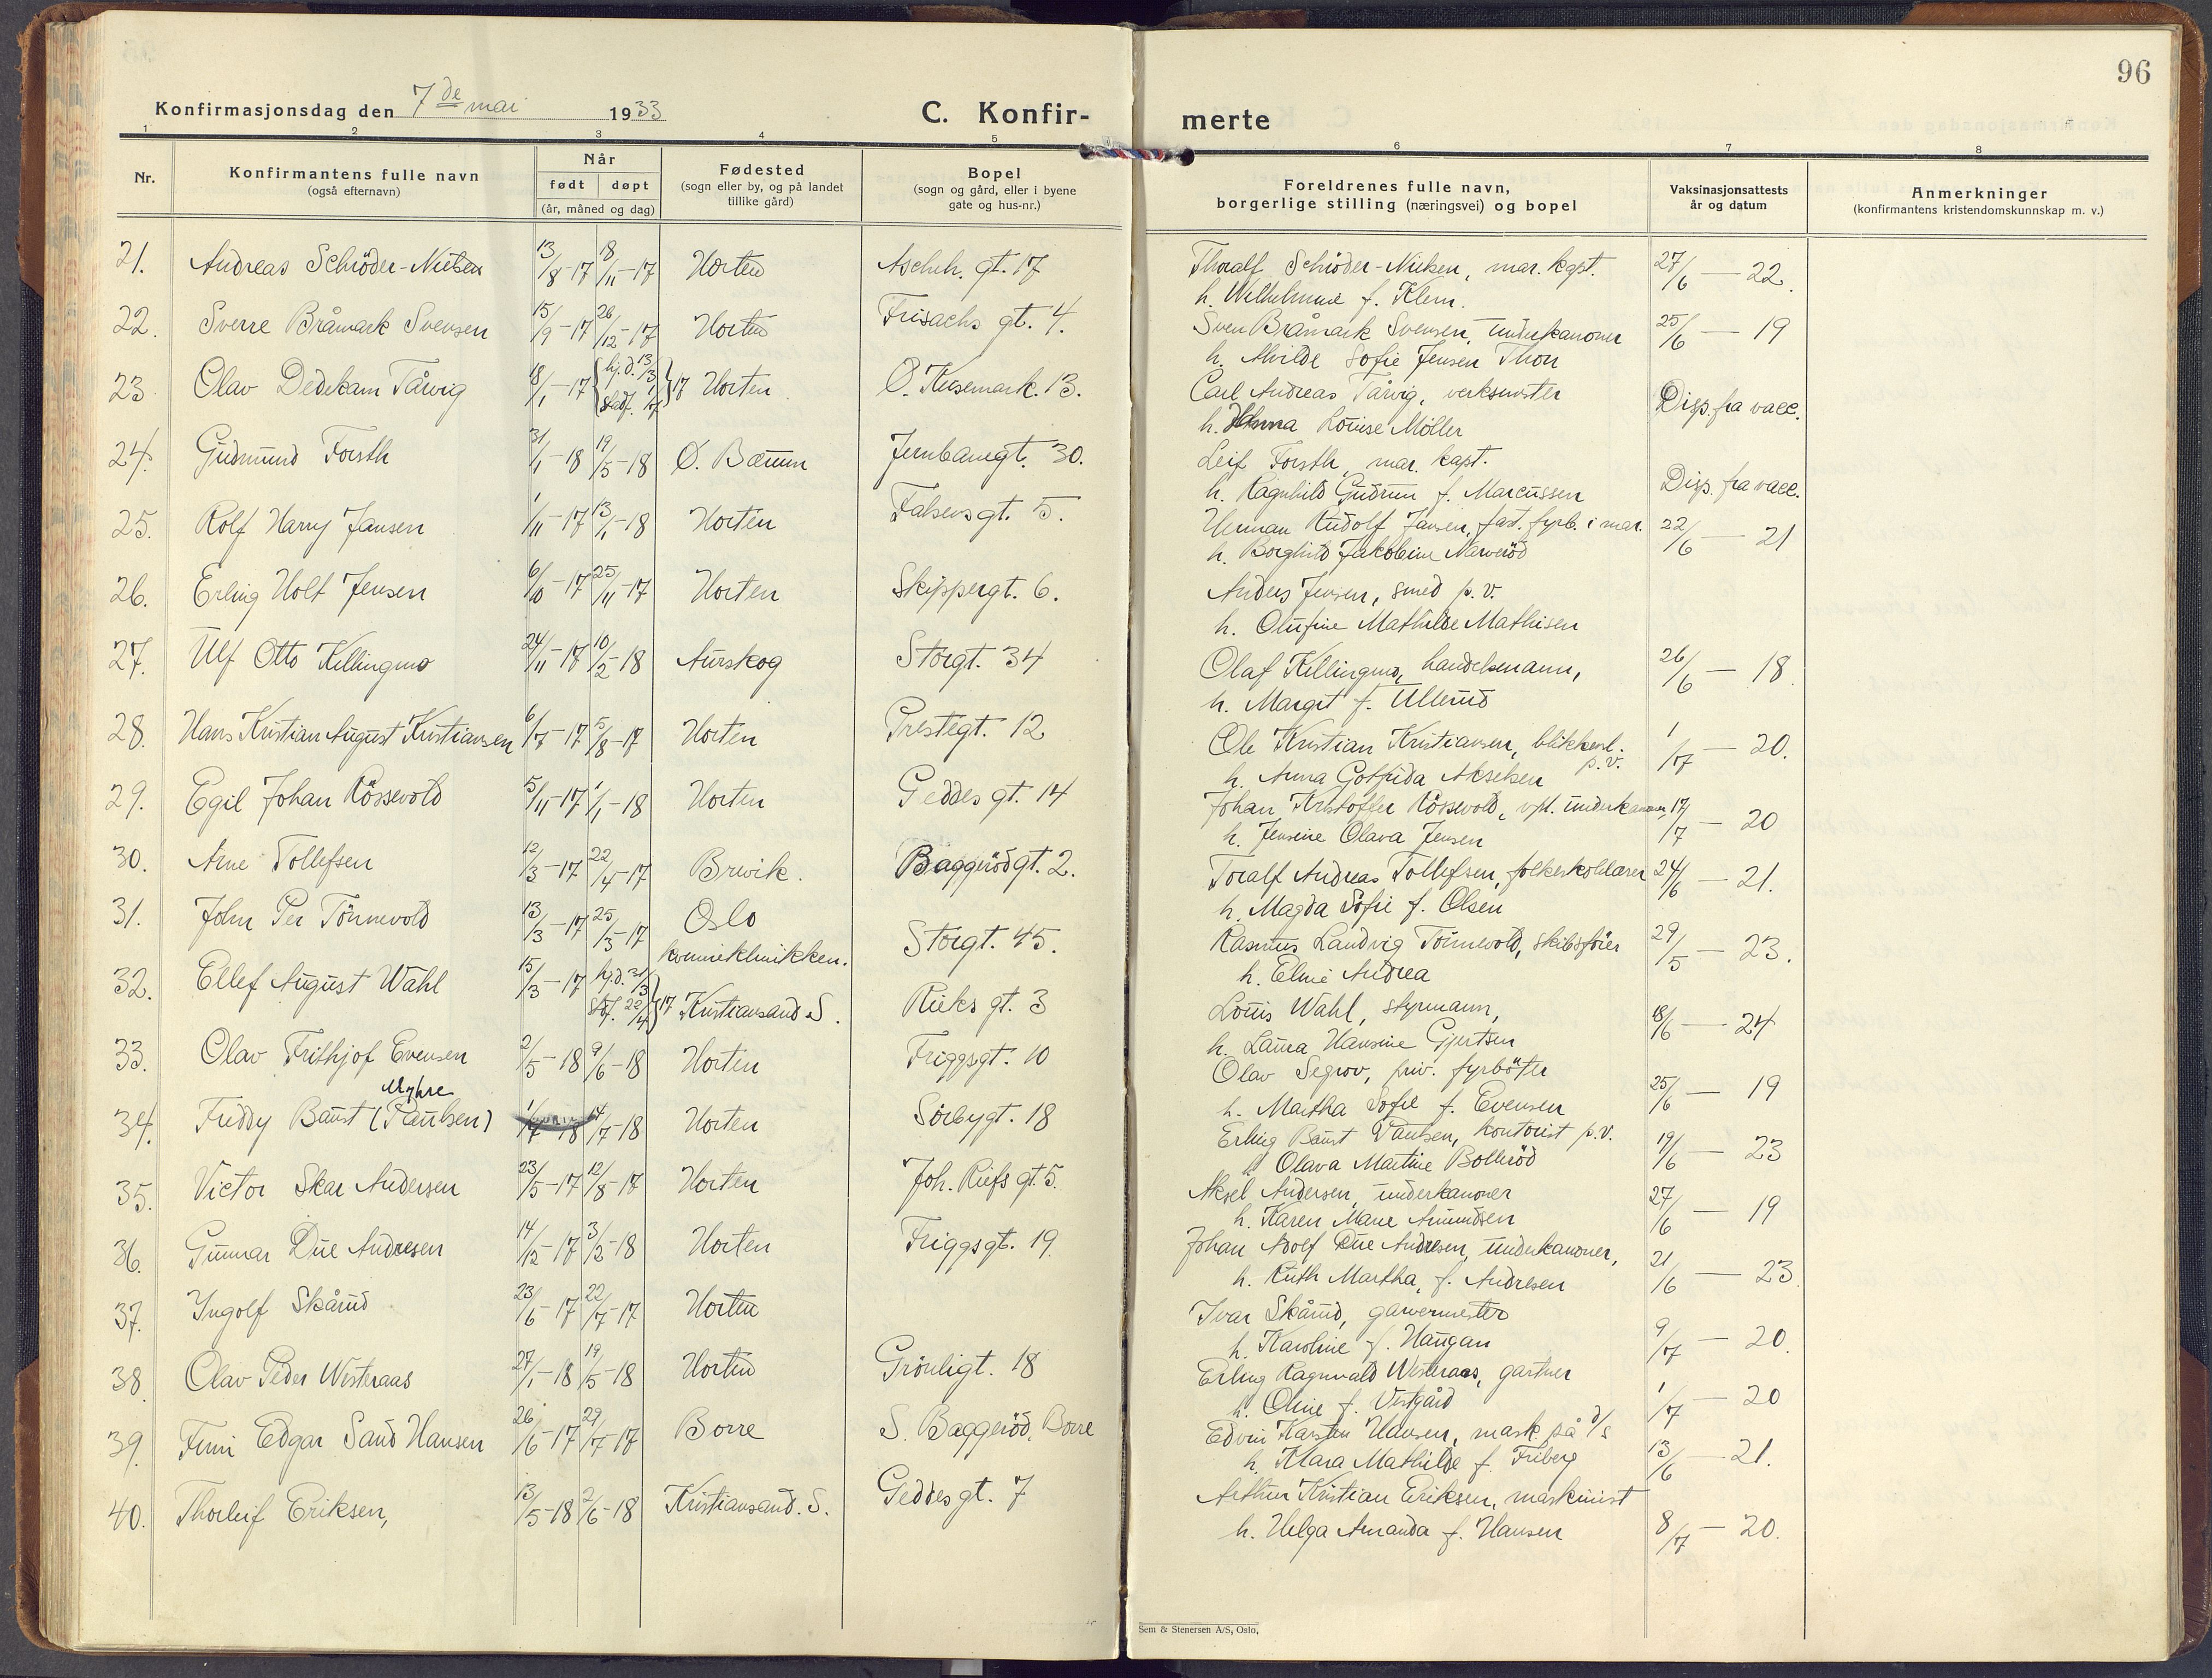 96
Konfirmasjonsdag den 7de mai 1933
C. Konfir-
merte
1 2 3 4 5 6 7 8
Nr.
Konfirmantens fulle navn
(også efternavn)
Når
født døpt
(år, måned og dag)
Fødested
(sogn eller by, og på landet
tillike gård)
Bopel
(sogn og gård, eller i byene
gate og hus-nr.)
Foreldrenes fulle navn,
borgerlige stilling (næringsvei) og bopel
Vaksinasjonsattests
år og datum
Anmerkninger
(konfirmantens kristendomskunnskap m. v.)
21. Andreas Schröder-Nielsen 13/8-17 18/11-17 Horten Ascheh. gt. 17 Thoralf Schröder-Nielsen, mar. kapt. 27/6 — 22.
h. Wilhelmine f. Klem.
22. Sverre Bråmark Svensen 15/9-17 26/12-17 Horten Frisachs gt. 4. Sven Bråmark Svensen, underkanoner 25/6 — 19
h. Alvilde Sofie Jensen Thon
23. Olav Dedekam Tårvig 18/1-17 {hj.d. 13/3 stadf. }17 Horten Ø. Keisemark. 13. Carl Andreas Tårvig, verksmster Disp. fra vacc.
h. Hanna Louise Möller
24. Gudmund Forsth 31/1-18 19/5-18 Ø. Bærum Jernbanegt. 30. Leif Forsth, mar. kapt. Disp. fra vacc.
h. Ragnhild Gudrun f. Marcussen
25. Rolf Harry Jansen 1/11-17 13/1-18 Horten Falsensgt. 5. Herman Rudolf Jansen, fast. fyrb. i mar. 22/6 — 21
h. Borghild Jakobine Narverød
26. Erling Holt Jensen 6/10-17 25/11-17 Horten Skippergt. 6. Anders Jensen, smed p.v.
h. Olufine Mathilde Mathisen
27. Ulf Otto Killingmo 24/11-17 10/2-18 Aurskog Storgt. 34 Olaf Killingmo, handelsmann, 26/6 — 18.
h. Margit f. Ullerud
28. Hans Kristian August Kristiansen 6/7-17 5/8-17 Horten Prestegt. 12 Ole Kristian Kristiansen, blikkensl. p.v. 1/7 — 20.
h. Anna Gotfrida Akselsen
29. Egil Johan Rössevold 5/11-17 1/1-18 Horten Geddes gt. 14 Johan Kristoffer Rössevold, vpl. underkanoner, 17/7 — 20
h. Jensine Olava Jensen
30. Arne Tollefsen 12/3-17 22/4-17 Brevik. Baggerödgt. 2. Toralf Andreas Tollefsen, folkeskolelærer 24/6 — 21.
h. Magda Sofie f. Olsen
31. John Per Tönnevold 13/3-17 25/3-17 Oslo kvinneklinikken. Storgt. 45. Rasmus Landvig Tönnevold, skibsförer 29/5 — 23.
h. Eline Andrea
32. Ellef August Wahl 15/3-17 hj.d. 31/3 stf. 22/4 }17 Kristiansand S. Rieks gt. 3 Louis Wahl, styrmann, 18/6 — 24
h. Laura Hansine Gjertsen
33. Olav Frithjof Evensen 2/5-18 9/6-18 Horten Friggsgt. 10 Olav Segrov, priv. fyrböter 25/6 — 19
h. Martha Sofie f. Evensen
Myhre
34. Freddy Baust (Paulsen) 1/4-18 14/7-18 Horten Sörbygt. 18 Erling Baust Paulsen, kontorist p.v. 19/6 — 23
h. Olava Martine Bolleröd
35. Victor Skar Andersen 23/5-17 12/8-17 Horten Joh. Riefs gt. 5. Aksel Andersen, underkanoner 27/6 — 19
h. Karen Marie Amundsen
36. Gunnar Due Andresen 14/12-17 3/2-18 Horten Friggsgt. 19. Johan Adolf Due Andresen, underkanoner, 21/6 — 23.
h. Ruth Martha, f. Andresen
37. Yngolf Skårud 23/6-17 22/7-17 Horten Ivar Skårud, garvermester 9/7 — 20.
h. Karoline f. Haugan
38. Olav Peder Westeraas 27/1-18 19/5-18 Horten Grönligt. 18 Erling Ragnvald Westeraas, gartner 1/7 — 20
h. Oline f. Vestgård
39. Finn Edgar Sand Hansen 26/6-17 29/7-17 Borre S. Baggeröd, Borre Edvin Karsten Hansen, mask. på d/s 13/6 — 21.
h. Klara Mathilde f. Friberg
40. Thorleif Eriksen, 13/5-18 2/6-18 Kristiansand. S. Geddes gt. 7 Arthur Kristian Eriksen, maskinist 8/7 — 20.
h. Helga Amanda f. Hansen
Sem & Stenersen A/S, Oslo.